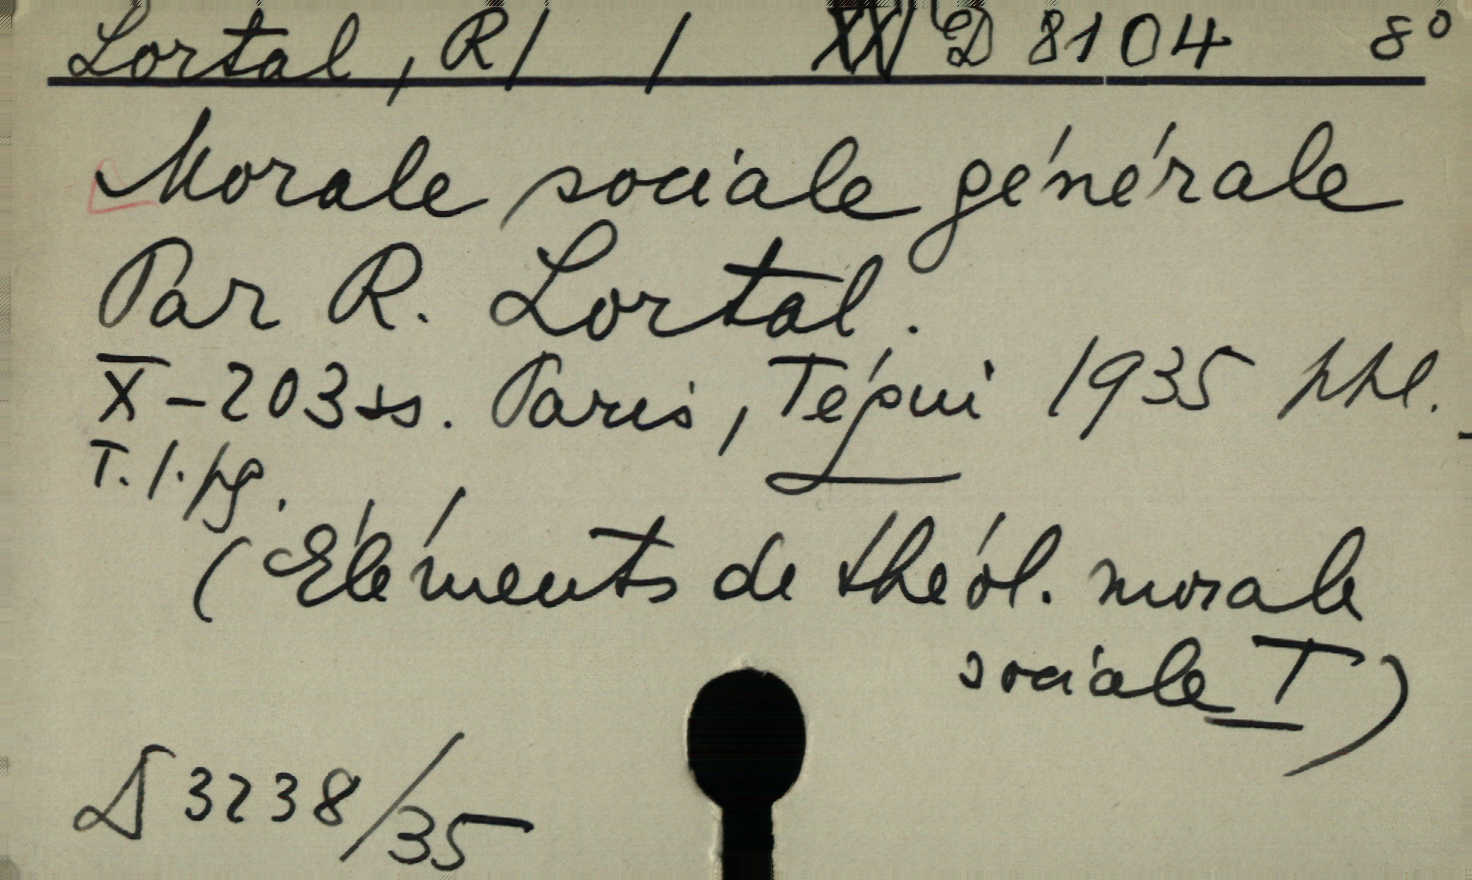 Lortal, R/ / XXI D 8104 8°
Morale sociale générale
Par R. Lortal.
X-203 ss. Paris, Téqui 1935 ppl.
T. 1. pg.
(Eléments de théol. morale
sociale I)
D 3238/35